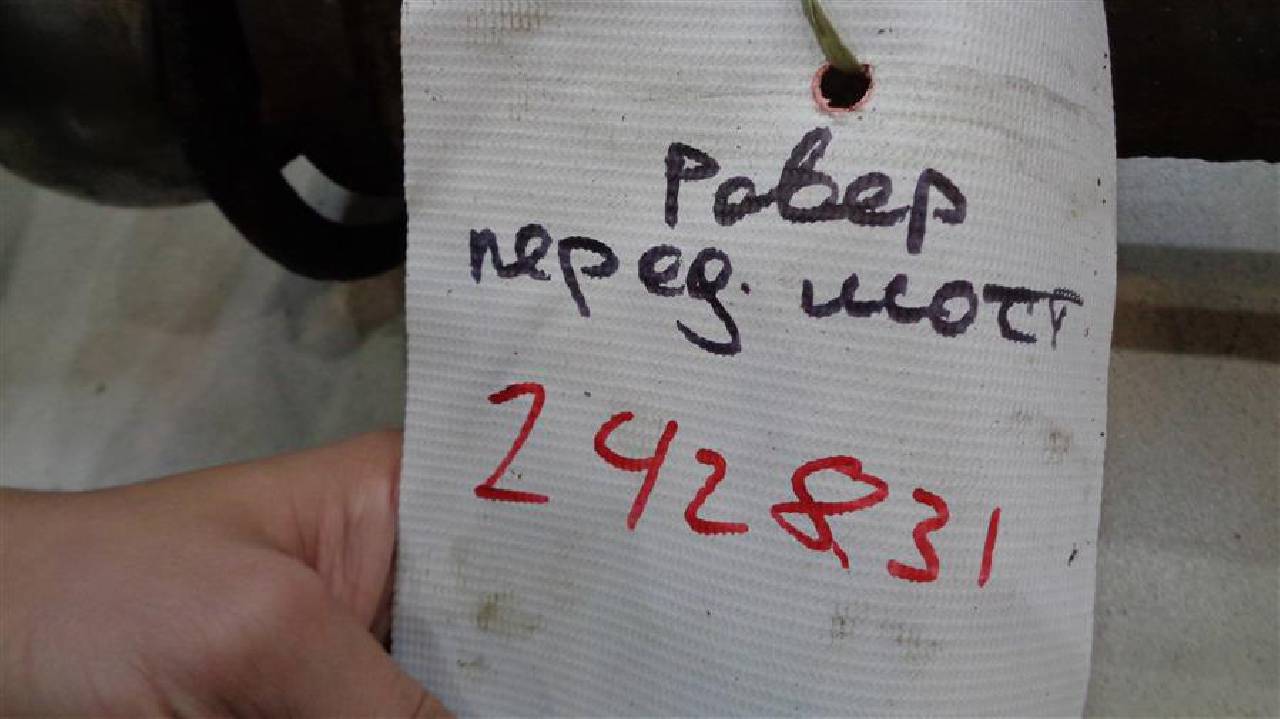 Ровер
перед. мост
242831